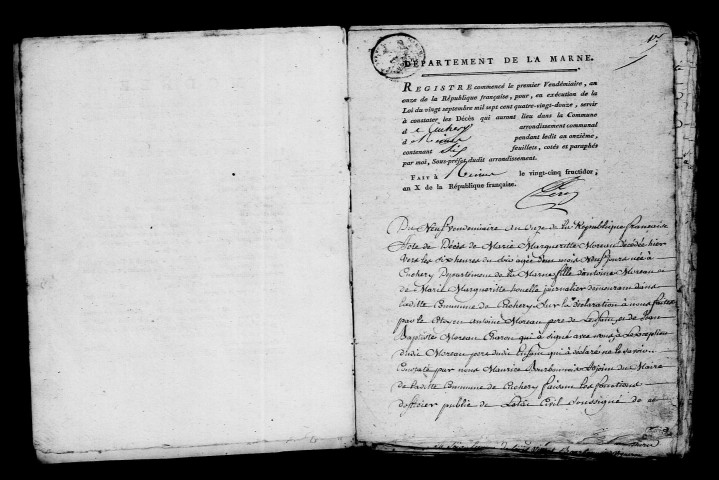 DÉPARTEMENT DE LA MARNE.
REGISTRE commencé le premier Vendémiaire, an
onze de la République française, pour, en exécution de la
Loi du vingt septembre mil sept cent quatre-vingt-douze, servir
à constater les Décès qui auront lieu dans la Commune
d e Cuchery arrondissement communal
d e Reims pendant ledit an onzième,
contenant six feuillets, cotés et paraphés
par moi, Sous-préfet dudit arrondissement.
FAIT à Reims le vingt-cinq fructidor,
an X de la République française.
Du Neuf vendemiaire an onze de la République française
Acte de Décès de Marie Margueritte Moreau décédée hier
vers les six heures du soir agée deux mois neuf jours née à
Cuchery Département de la Marne fille d'antoine Moreau et
de Marie Margueritte houelle journalier demeurant dans
laditte Commune de Cuchery Sur la déclaration à nous faitte
par le Citoyen antoine Moreau pere de Lenfant, et de Jean
Baptiste Moreau Charon qui à signé avec nous à Lexception
dudit Moreau pere dudit Enfant qui à déclaré ne le savoir
Constaté par nous Maurice Bourbonnois adjoint du Maire
de laditte Commune de Cuchery faisant les fonctions
dofficier public de Letat Civil Soussigné de ce